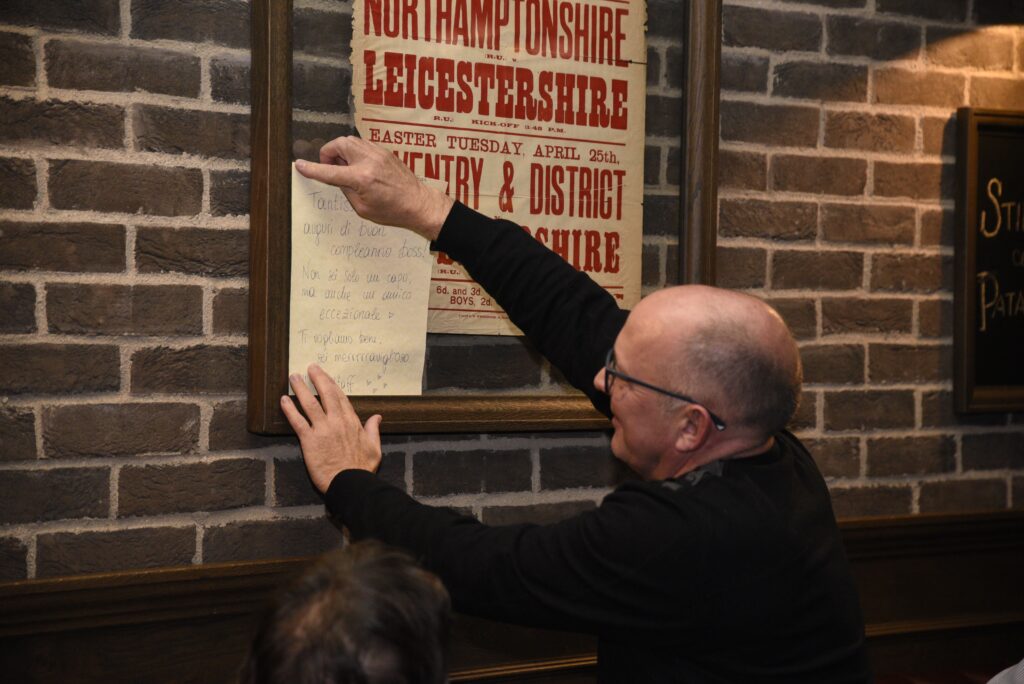 NORTHAMPTONSHIRE
R.U. v.
LEICESTERSHIRE
R.U. KICK-OFF 3:45 P.M.
EASTER TUESDAY, APRIL 25th,
VENTRY & DISTRICT
SHIRE
R.U.
6d. and 3d
BOYS, 2d.
Tantiss
auguri di buon
compleanno boss!
Non sei solo un capo,
ma anche un amico
eccezionale
Ti vogliamo bene,
sei meraviglioso
S
PATA